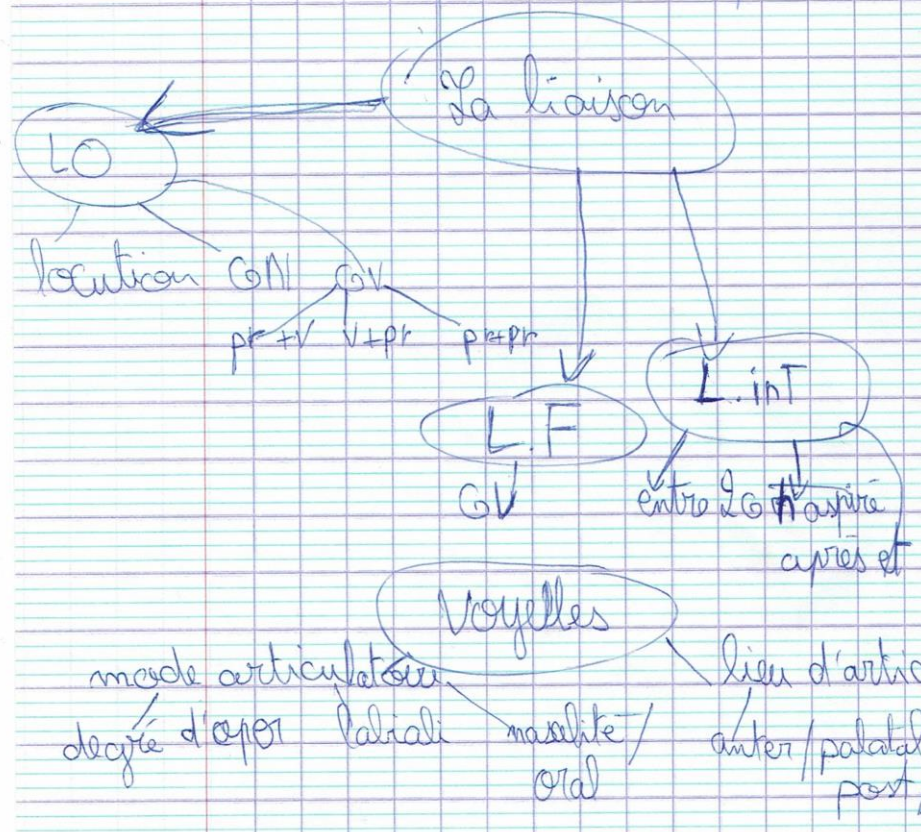 La liaison
LO
locution GN GV
pr + V V + pr pr+pr
L.F
L.inT
GV
entre 2G h aspiré
après et
Voyelles
mode articulatoire
lieu d'artic
degré d'aper labiali nasalité /
oral
anter / palatal
post